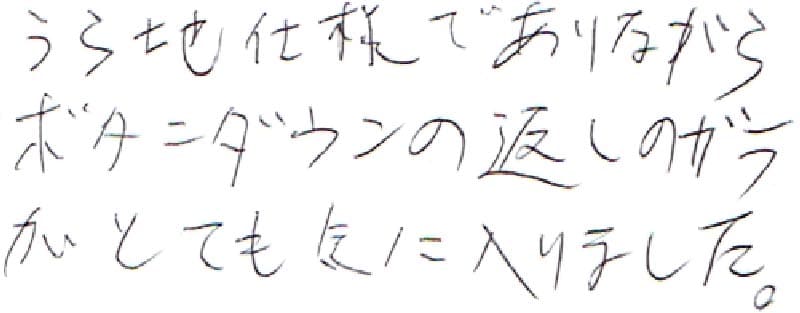 うら地仕様でありながら
ボタンダウンの返しのガラ
がとても気に入りました。